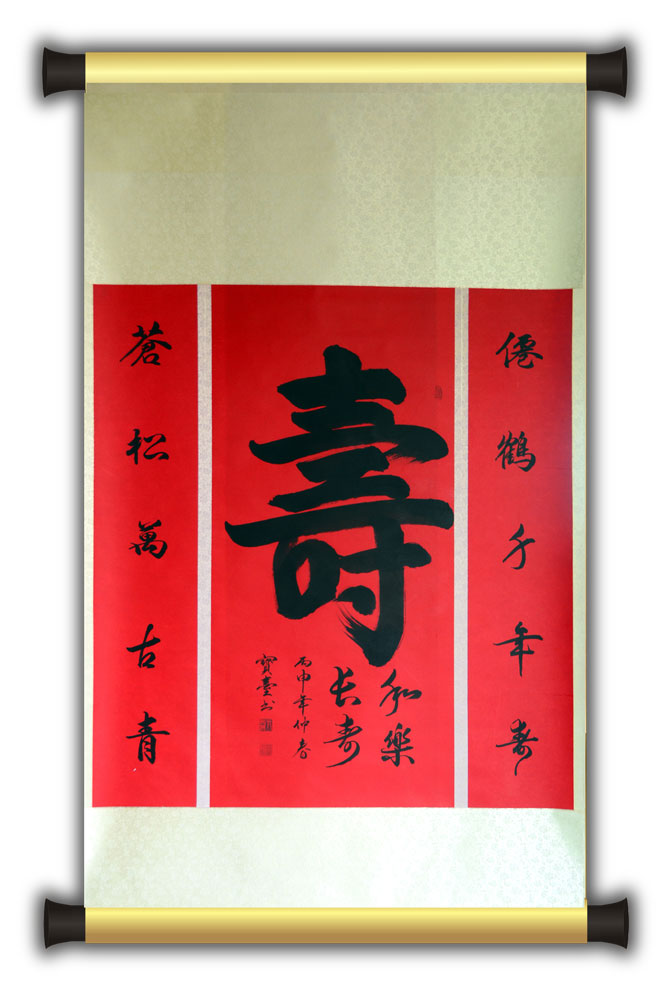 僊鶴千年壽
壽
和樂
长寿
丙申年仲春
寶臺书
蒼松萬古青